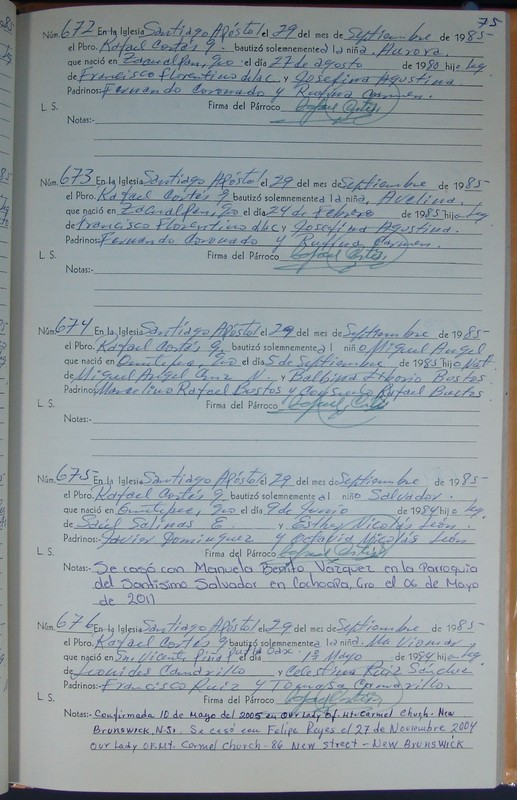 75
Núm. 672 En la Iglesia Santiago Apóstol el 29 del mes de Septiembre de 1985-
el Pbro. Rafael Cortés G. bautizó solemnemente a la niña, Aurora.
que nació en Zacualpan, Gro el día 27 de agosto de 1980 hija Leg
de Francisco Florentino dlaC y Josefina Agustina.
Padrinos: Fernando Coronado y Rufina Carmen.
L. S. Firma del Párroco Rafael Cortés
Notas:-
Núm. 673 En la Iglesia Santiago Apóstol el 29 del mes de Septiembre de 1985-
el Pbro. Rafael Cortés G bautizó solemnemente a la niña, Avelina.
que nació en Zacualpan, Gro el día 24 de Febrero de 1985 hija Leg
de Francisco Florentino dlaC y Josefina Agustina.
Padrinos: Fernando Coronado y Rufina Carmen.
L. S. Firma del Párroco Rafael Cortés
Notas:-
Núm. 674 En la Iglesia Santiago Apóstol el 29 del mes de Septiembre de 1985-
el Pbro. Rafael Cortés G. bautizó solemnemente al niño Miguel Angel
que nació en Ometepec, Gro el día 5 de Septiembre de 1985 hijo Nat.
de Miguel Angel Cruz N. y Balbina Bustos
Padrinos: Marcelino Rafael Bustos y Consuelo Rafael Bustos
L. S. Firma del Párroco Rafael Cortés
Notas:-
Núm. 675- En la Iglesia Santiago Apóstol el 29 del mes de Septiembre de 1985-
el Pbro. Rafael Cortés G bautizó solemnemente al niño Salvador.
que nació en Ometepec, Gro el día 9 de Junio de 1984 hijo Leg.
de Saúl Salinas E. y Esther Nicolás León.
Padrinos:- Javier Domínguez y Octavia Nicolás León
L. S. Firma del Párroco Rafael Cortés
Notas: Se casó con Manuela Benito Vázquez en la Parroquia
del Santísimo Salvador en Cochoapa, Gro. el 06 de Mayo
de 2011
Núm. 676 En la Iglesia Santiago Apóstol el 29 del mes de Septiembre de 1985-
el Pbro. Rafael Cortés G bautizó solemnemente a la niña. Ma Viomar
que nació en Sn. Vicente Piña Putla Oax. el día 1º Mayo de 1984 hija Leg.
de Leonides Camarillo y Celestina Ruiz Sánchez
Padrinos:- Francisco Ruiz y Tomasa Camarillo.
L. S. Firma del Párroco Rafael Cortés
Notas:- Confirmada 10 de Mayo del 2005 en Our Lady of Mt. Carmel Church- New
Brunswick, N.J. Se casó con Felipe Reyes el 27 de Noviembre 2004
Our Lady of Mt. Carmel Church- 86 New Street - New Brunswick